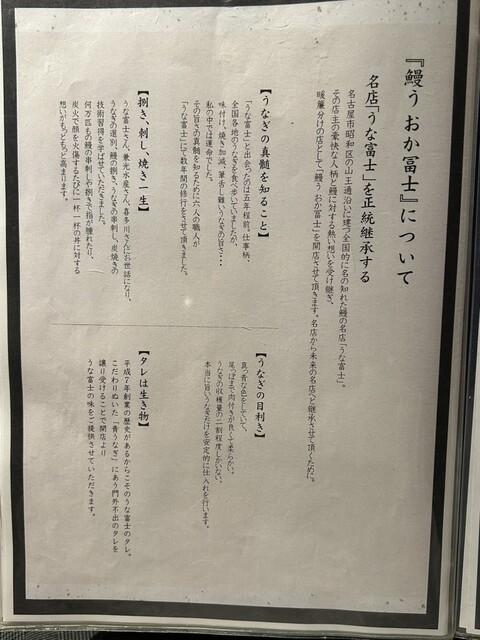 『鰻う おか冨士』について
名店「うな富士」を正統継承する
名古屋市昭和区の山王通沿いに建つ全国的に名の知れた鰻の名店「うな富士」。
その店主の豪快な人柄と鰻に対する熱い想いを受け継ぎ、
暖簾分けの店として「鰻う おか冨士」を開店させて頂きます。名店から未来の名店へと継承させて頂くために。
【うなぎの真髄を知ること】
「うな富士」と出会ったのは五年程前。仕事柄、
全国各地のうなぎを食べ歩いていましたが、
味付け、焼き加減、筆舌し難いうなぎの旨さ・・・
私の中では運命でした。
その旨さの真髄を知るために六人の職人が
「うな富士」にて数年間の修行をさせて頂きました。
【うなぎの目利き】
真っ青な色をしていて、
尾っぽまで肉付きが良くて柔らかい。
うなぎの収穫量の二割程度しかいない、
本当に旨いうなぎだけを安定的に仕入れを行います。
【捌き、刺し、焼き一生】
うな富士さん、兼光水産さん、喜多川さんにお世話になり、
うなぎの選別、鰻の捌き、うなぎの串刺し、炭焼きの
技術習得を学ばせていただきました。
何万匹もの鰻の串刺しや捌きで指が腫れたり、
炭火で顔を火傷するたびに一杯一杯の丼に対する
想いがもっともっと高まります。
【タレは生き物】
平成7年創業の歴史があるからこそのうな富士のタレ。
こだわりぬいた「青うなぎ」にあう門外不出のタレを
譲り受けることで開店より
うな富士の味をご提供させていただきます。